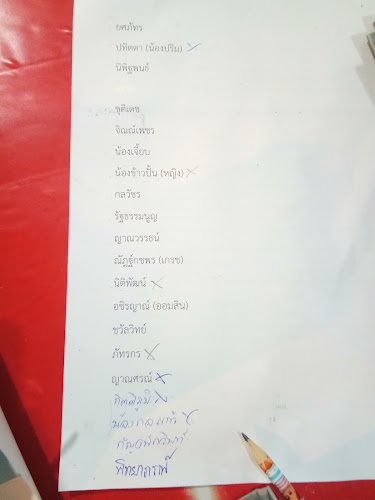 ยศภัทร
ปทิตตา (น้องปริม) ×
นิพิฐพนธ์
ชุติเดช
จิณณ์เพชร
น้องเจี๊ยบ
น้องข้าวปั้น (หญิง) ×
กลวัชร
รัฐธรรมนูญ
ญาณวรรธน์
ณัฏฐ์กชพร (เกรซ)
นิติพัฒน์ ×
อชิรญาณ์ (ออมสิน)
ชวัลวิทย์
ภัทรกร ×
ญาณศรณ์ ×
กิตติภูมิ ×